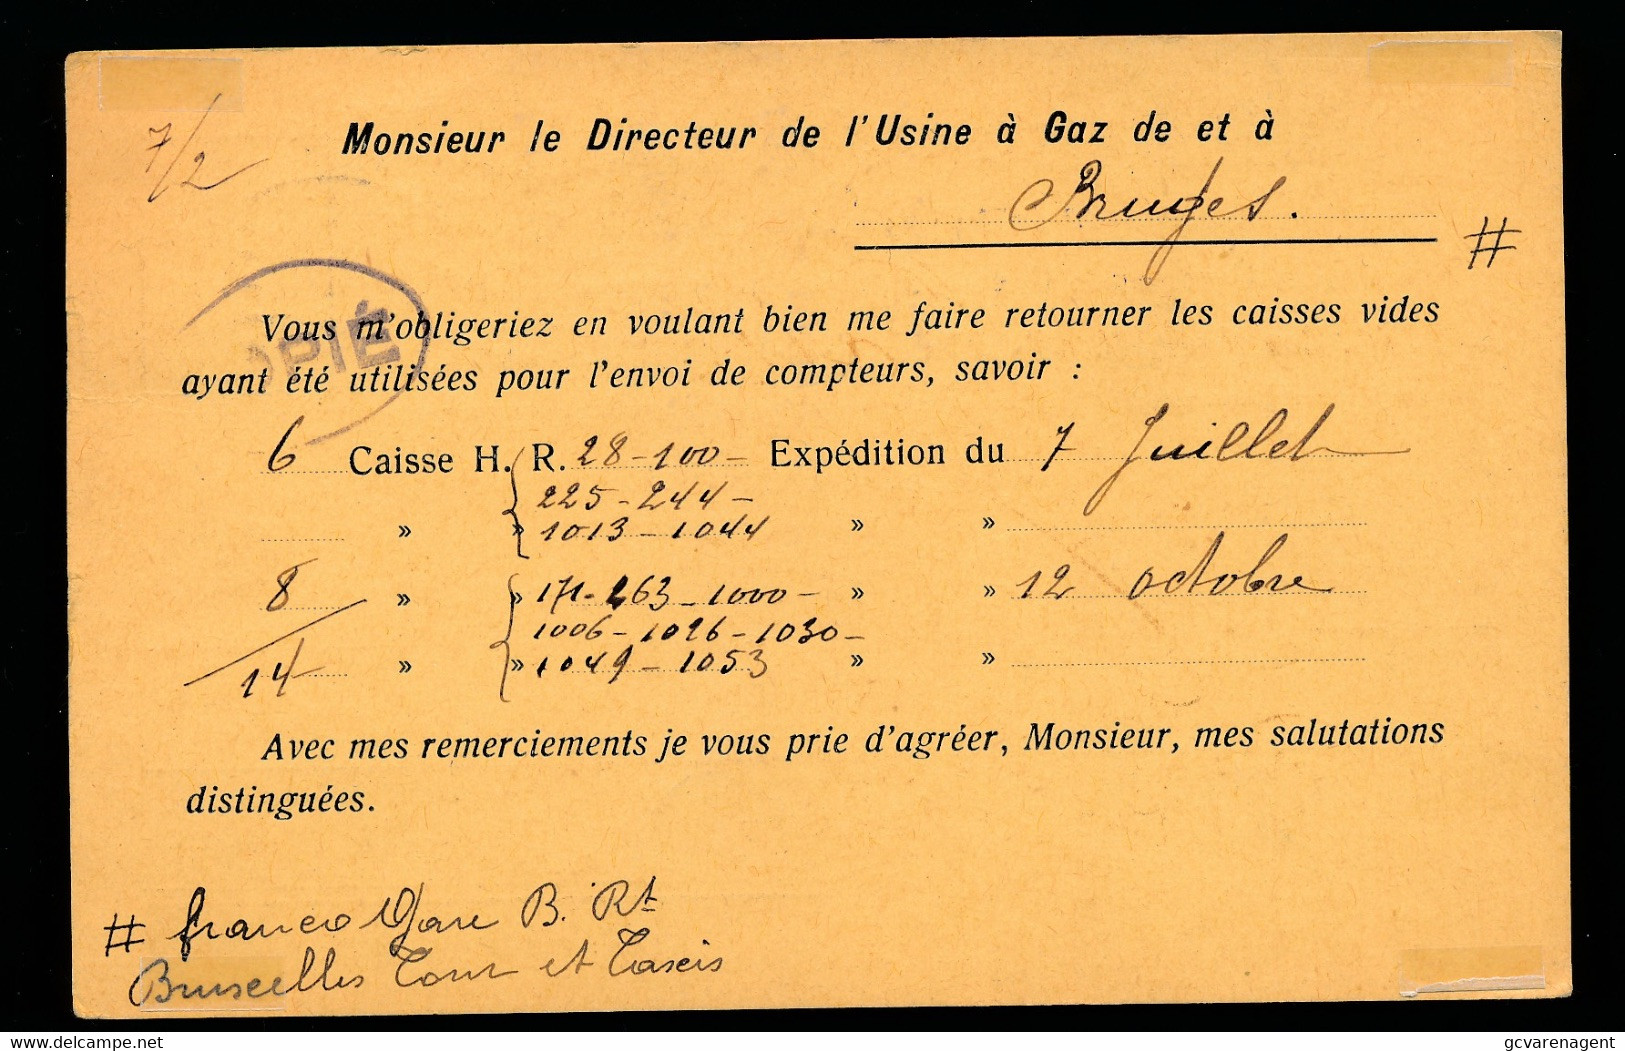 7/2
Monsieur le Directeur de l'Usine à Gaz de et à
Bruges. #
OPIÉ
Vous m'obligeriez en voulant bien me faire retourner les caisses vides
ayant été utilisées pour l'envoi de compteurs, savoir :
6 Caisse H. R. 28-100- Expédition du 7 Juillet
225-244-
» » 1013-1044 » »
8 » » 171-263-1000- » » 12 octobre
1006-1026-1030-
14 » » 1049-1053 » »
Avec mes remerciements je vous prie d'agréer, Monsieur, mes salutations
distinguées.
# franco Gare B. Rt
Bruxelles Tour et Taxis
delcampe.net
gcvarenagent